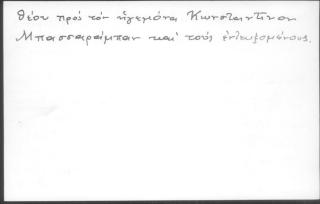 θέου πρός τόν ἡγεμόνα Κωνσταντῖνον
Μπασσαράμπαν καί τούς ἐντευξομένους.